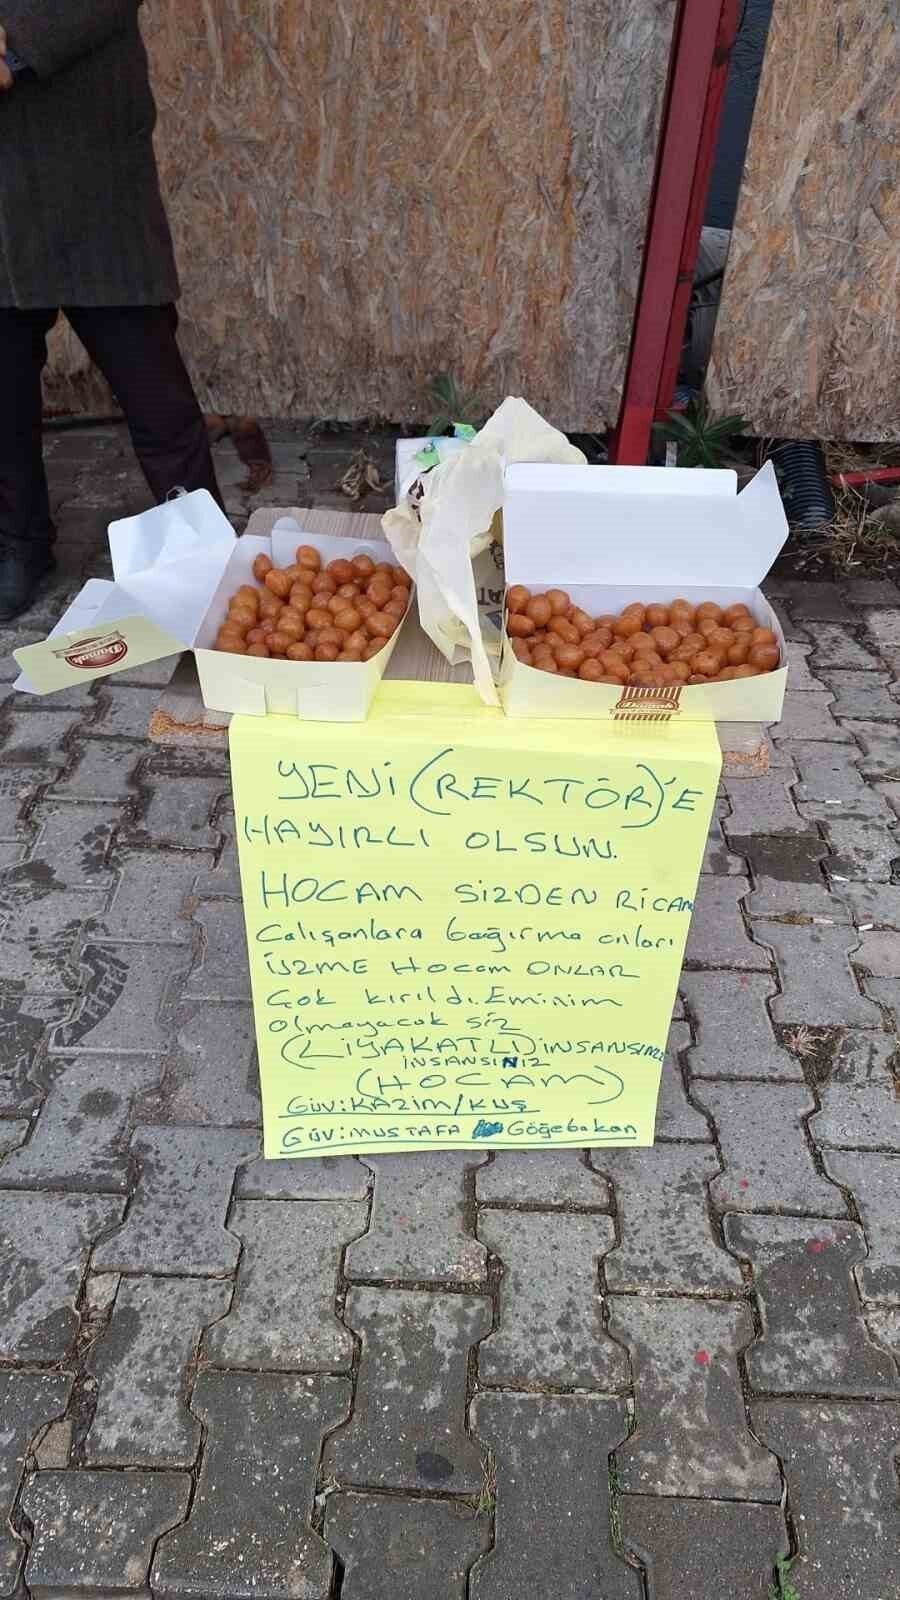 Damak
Damak
YENİ (REKTÖR)'E
HAYIRLI OLSUN.
HOCAM SİZDEN RİCAM
Calışanlara bağırma onları
üzme Hocam ONLAR
Çok kırıldı. Eminim
olmayacak siz
(LİYAKATLI) İNSANSINIZ
İNSANSINIZ
(HOCAM)
GÜV: KAZIM/KUŞ
GÜV: MUSTAFA Göğebakan